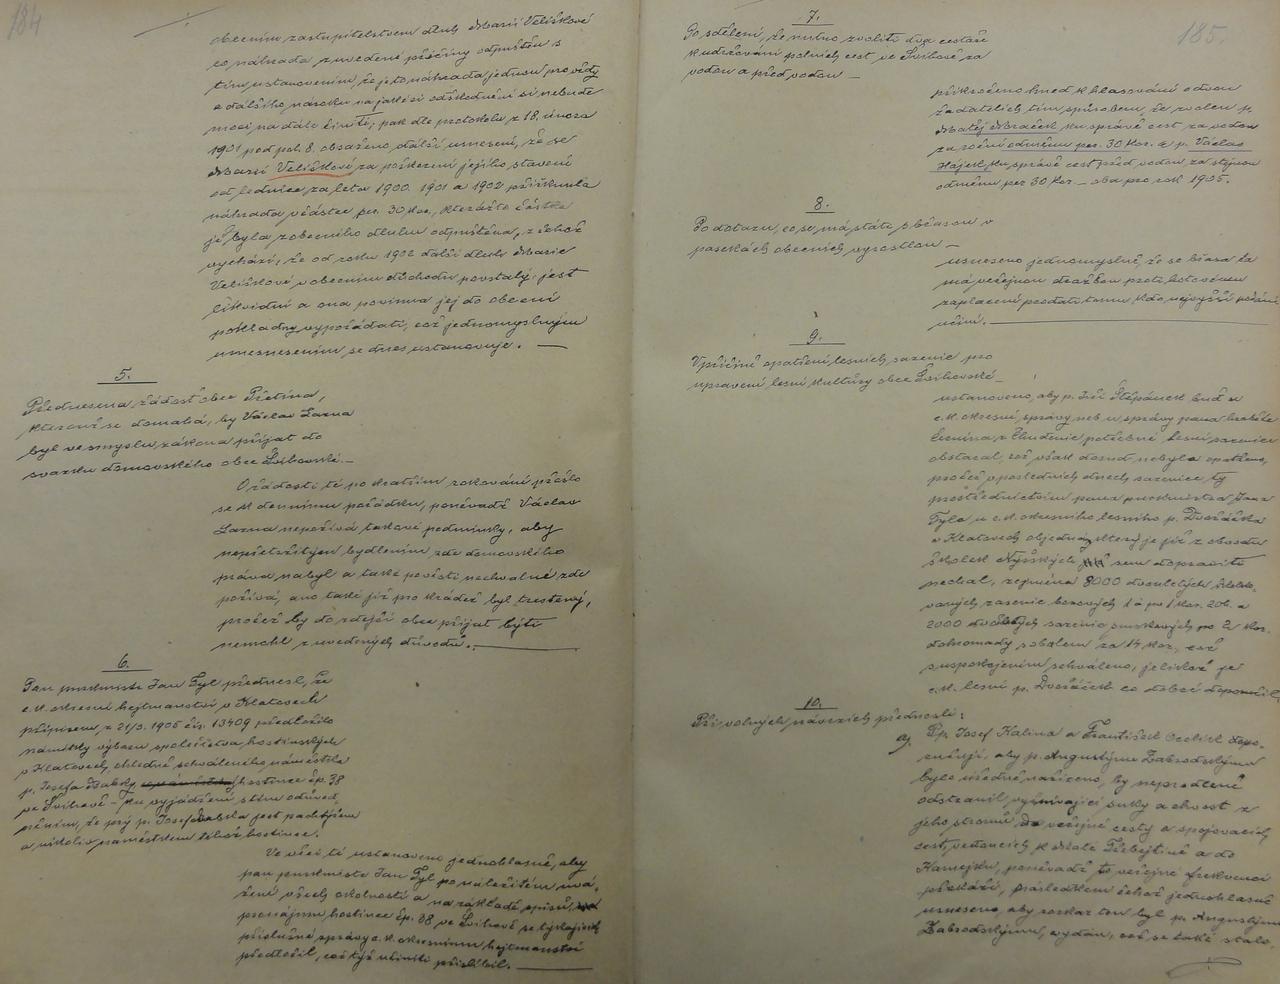 184
obecním zastupitelstvem dluh Marii Veliškové
co náhrada z uvedené příčiny odpuštěn s
tím ustanovením, že je to náhrada jednou pro vždy
a dalšího nároku na jakési odškodnění si nebude
moci na dále činiti, pak dle protokolu z 18. února
1901 pod pol. 8. obsaženo další usnesení, že se
Marii Veliškové za poškození jejího stavení
od lednice za léta 1900. 1901 a 1902 přiřknula
náhrada v částce per. 30 Kor., kterážto částka
jí byla z obecního dluhu odpuštěna, z čehož
vychází, že od roku 1902 další dluh Marie
Veliškové v obecním důchodu povstalý, jest
likvidní a ona povinna jej do obecní
pokladny vypořádati, což jednomyslným
usnesením se dnes ustanovuje. —
5.
Přednesena žádost obce Přetína,
kterouž se domáhá, by Václav Lazna
byl ve smyslu zákona přijat do
svazku domovského obce Švihovské. —
O žádosti té po kratším rokování přešlo
se k dennímu pořádku, poněvadž Václav
Lazna nepožívá takové podmínky, aby
nepřetržitým bydlením zde domovského
práva nabyl a také pověsti nechvalné zde
požívá, ano také již pro krádež byl trestaný,
pročež by do zdejší obce přijat býti
nemohl z uvedených důvodů. —
6.
Pan purkmistr Jan Tyl přednesl, že
c.k. okresní hejtmanství v Klatovech
přípisem z 21/3. 1905 čís. 13409 předložilo
námitky výboru společstva hostinských
v Klatovech, ohledně schváleného náměstka
p. Josefa Babky hostince čp. 38
ve Švihově – ku vyjádření s tím odůvod-
něním, že prý p. Josef Babka jest pachtýřem
a nikoliv náměstkem téhož hostince.
Ve věci té ustanoveno jednohlasně, aby
pan purkmistr Jan Tyl po náležitém uvá-
žení všech okolností a na základě spisů,
pronájmu hostince čp. 38 ve Švihově se týkajících
příslušné zprávy c.k. okresnímu hejtmanství
předložil, což týž učiniti přislíbil. —
185.
7.
Po sdělení, že nutno zvoliti dva cestáře
k udržování polních cest ve Švihově za
vodou a před vodou —
přikročeno hned k hlasování o dvou
žadatelích tím způsobem, že zvolen p.
Matěj Mraček ku správě cest za vodou
za roční odměnu per. 30 Kor. a p. Václav
Hájek, ku správě cest před vodou za stejnou
odměnu per 30 Kor. — oba pro rok 1905.
8.
Po dotazu, co se má státi s břasou v
pasekách obecních vyrostlou —
usneseno jednomyslně, že se břasa ta
má veřejnou dražbou proti hotovému
zaplacení prodati tomu kdo nejvyšší podání
učiní. —
9.
V příčině opatření lesních sazenic pro
upravení lesní kultury obce Švihovské —
ustanoveno, aby p. Jiří Štěpánek buď u
c.k. okresní správy neb u správy pana hraběte
Černína z Chudenic potřebné lesní sazenice
obstaral, což však dosud nebylo opatřeno,
pročež v posledních dnech sazenice ty
prostřednictvím pana purkmistra Jana
Tyla u c.k. okresního lesního p. Dvořáčka
v Klatovech objednány, který je již z obvodu
školek Nýrských sem dopraviti
nechal, zejména 8000 dvouletých školko-
vaných sazenic borových 1 à po 1 Kor. 20 h. a
2000 dvouletých sazenic smrkových po 2 Kor.
dohromady s obalem za 14 Kor., což
s uspokojením schváleno, jelikož je
c.k. lesní p. Dvořáček co dobré doporučil.
10.
Při volných návrzích přednesli:
a, Pp. Josef Kalina a František Cechich dopo-
ručují, aby p. Augustýnu Zabrodskýmu
bylo úředně nařízeno, by neprodleně
odstranil vyčnívající suky a chvost z
jeho stromů do veřejné cesty a spojovacích
cest, vedoucích k Malé Třebejčině a do
Kamejku, poněvadž to veřejné frekvenci
překáží, následkem čehož jednohlasně
usneseno, aby rozkaz ten byl p. Augustýnu
Zabrodskýmu, vydán, což se také stalo.